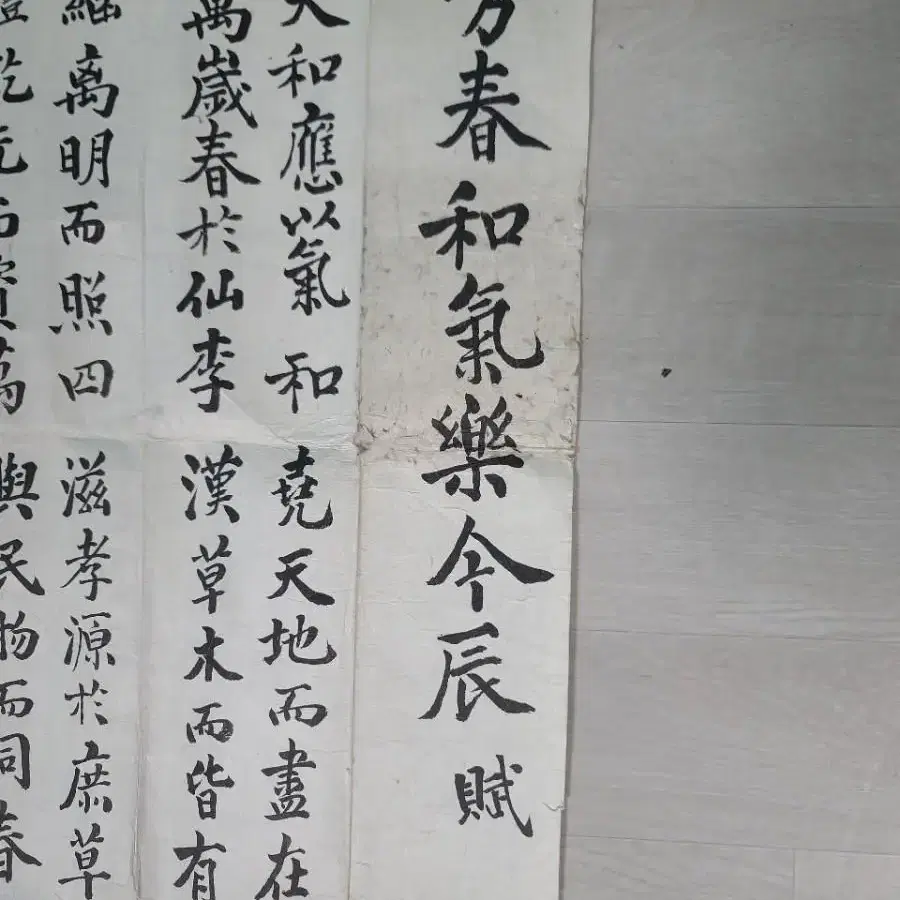 春和氣樂今辰 賦
和應以氣 和 堯天地而盡在
萬歲春於仙李 漢草木而皆有
離明而照四 滋孝源於庶草
乾元而資萬 與民物而同春